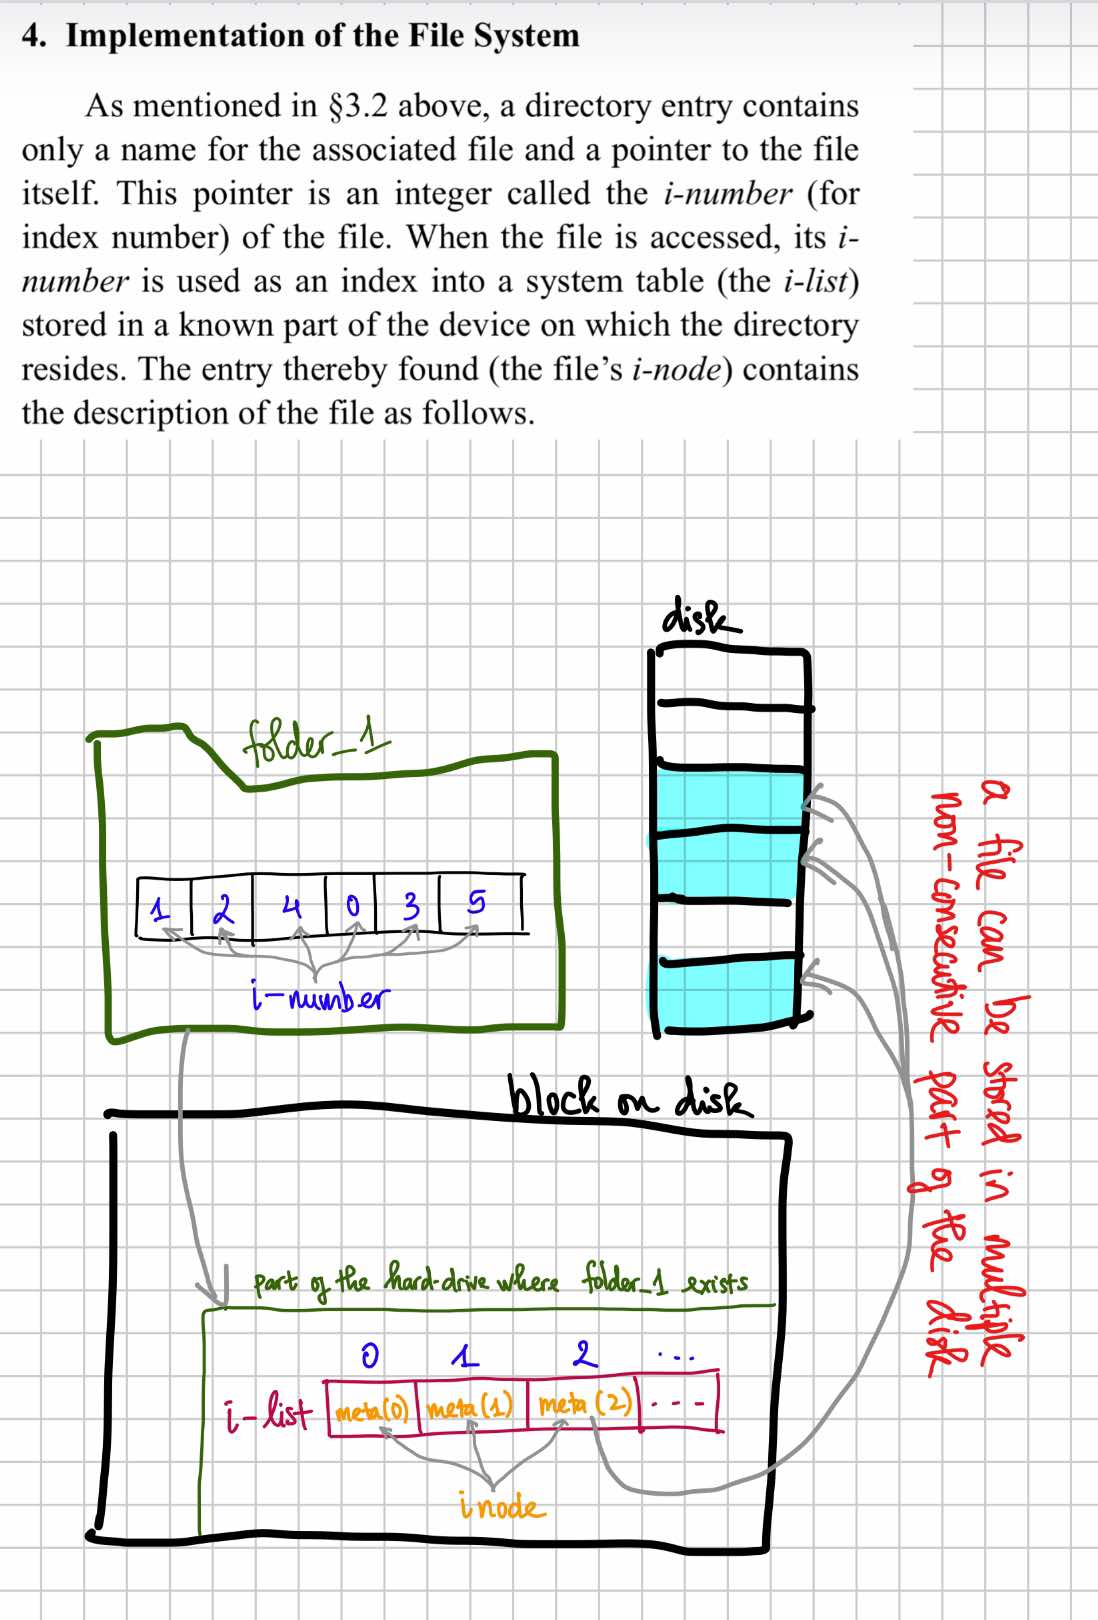 4. Implementation of the File System
As mentioned in §3.2 above, a directory entry contains
only a name for the associated file and a pointer to the file
itself. This pointer is an integer called the i-number (for
index number) of the file. When the file is accessed, its i-
number is used as an index into a system table (the i-list)
stored in a known part of the device on which the directory
resides. The entry thereby found (the file's i-node) contains
the description of the file as follows.
disk
folder_1
1 2 4 0 3 5
i-number
a file can be stored in multiple
non-consecutive part of the disk
block on disk
part of the hard-drive where folder_1 exists
0 1 2 ...
i-list meta(0) meta(1) meta(2) ---
inode